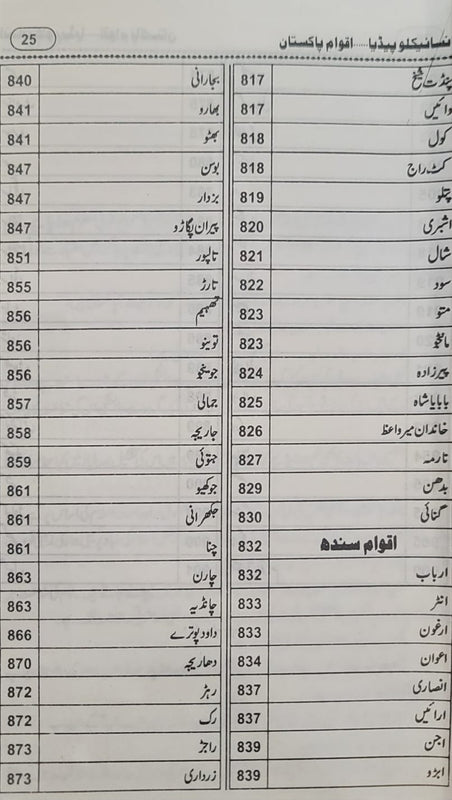 انسائیکلوپیڈیا.....اقوام پاکستان
25
پنڈت شیخ 817
وائیں 817
کول 818
کٹ راج 818
پتلو 819
اشبری 820
شال 821
سود 822
متو 823
مانٹجو 823
پیرزادہ 824
بابا پاشاہ 825
خاندان میر واعظ 826
تارمہ 827
بدھن 829
گنائی 830
اقوام سندھ 832
ارباب 832
انڑ 833
ارغون 833
اعوان 834
انصاری 837
ارائیں 837
اجن 839
ابڑو 839
بجارانی 840
بھارو 841
بھٹو 841
بوسن 847
بزدار 847
پیران پگاڑو 847
تالپور 851
تارڑ 855
تھہیم 856
توینو 856
جونیجو 856
جمالی 857
جاریجہ 858
جتوئی 859
جوکھیو 861
جکھرانی 861
چنا 861
چارن 863
چانڈیہ 863
داود پوترے 866
دھاریجہ 870
رہڑ 872
رک 872
راجڑ 873
زرداری 873